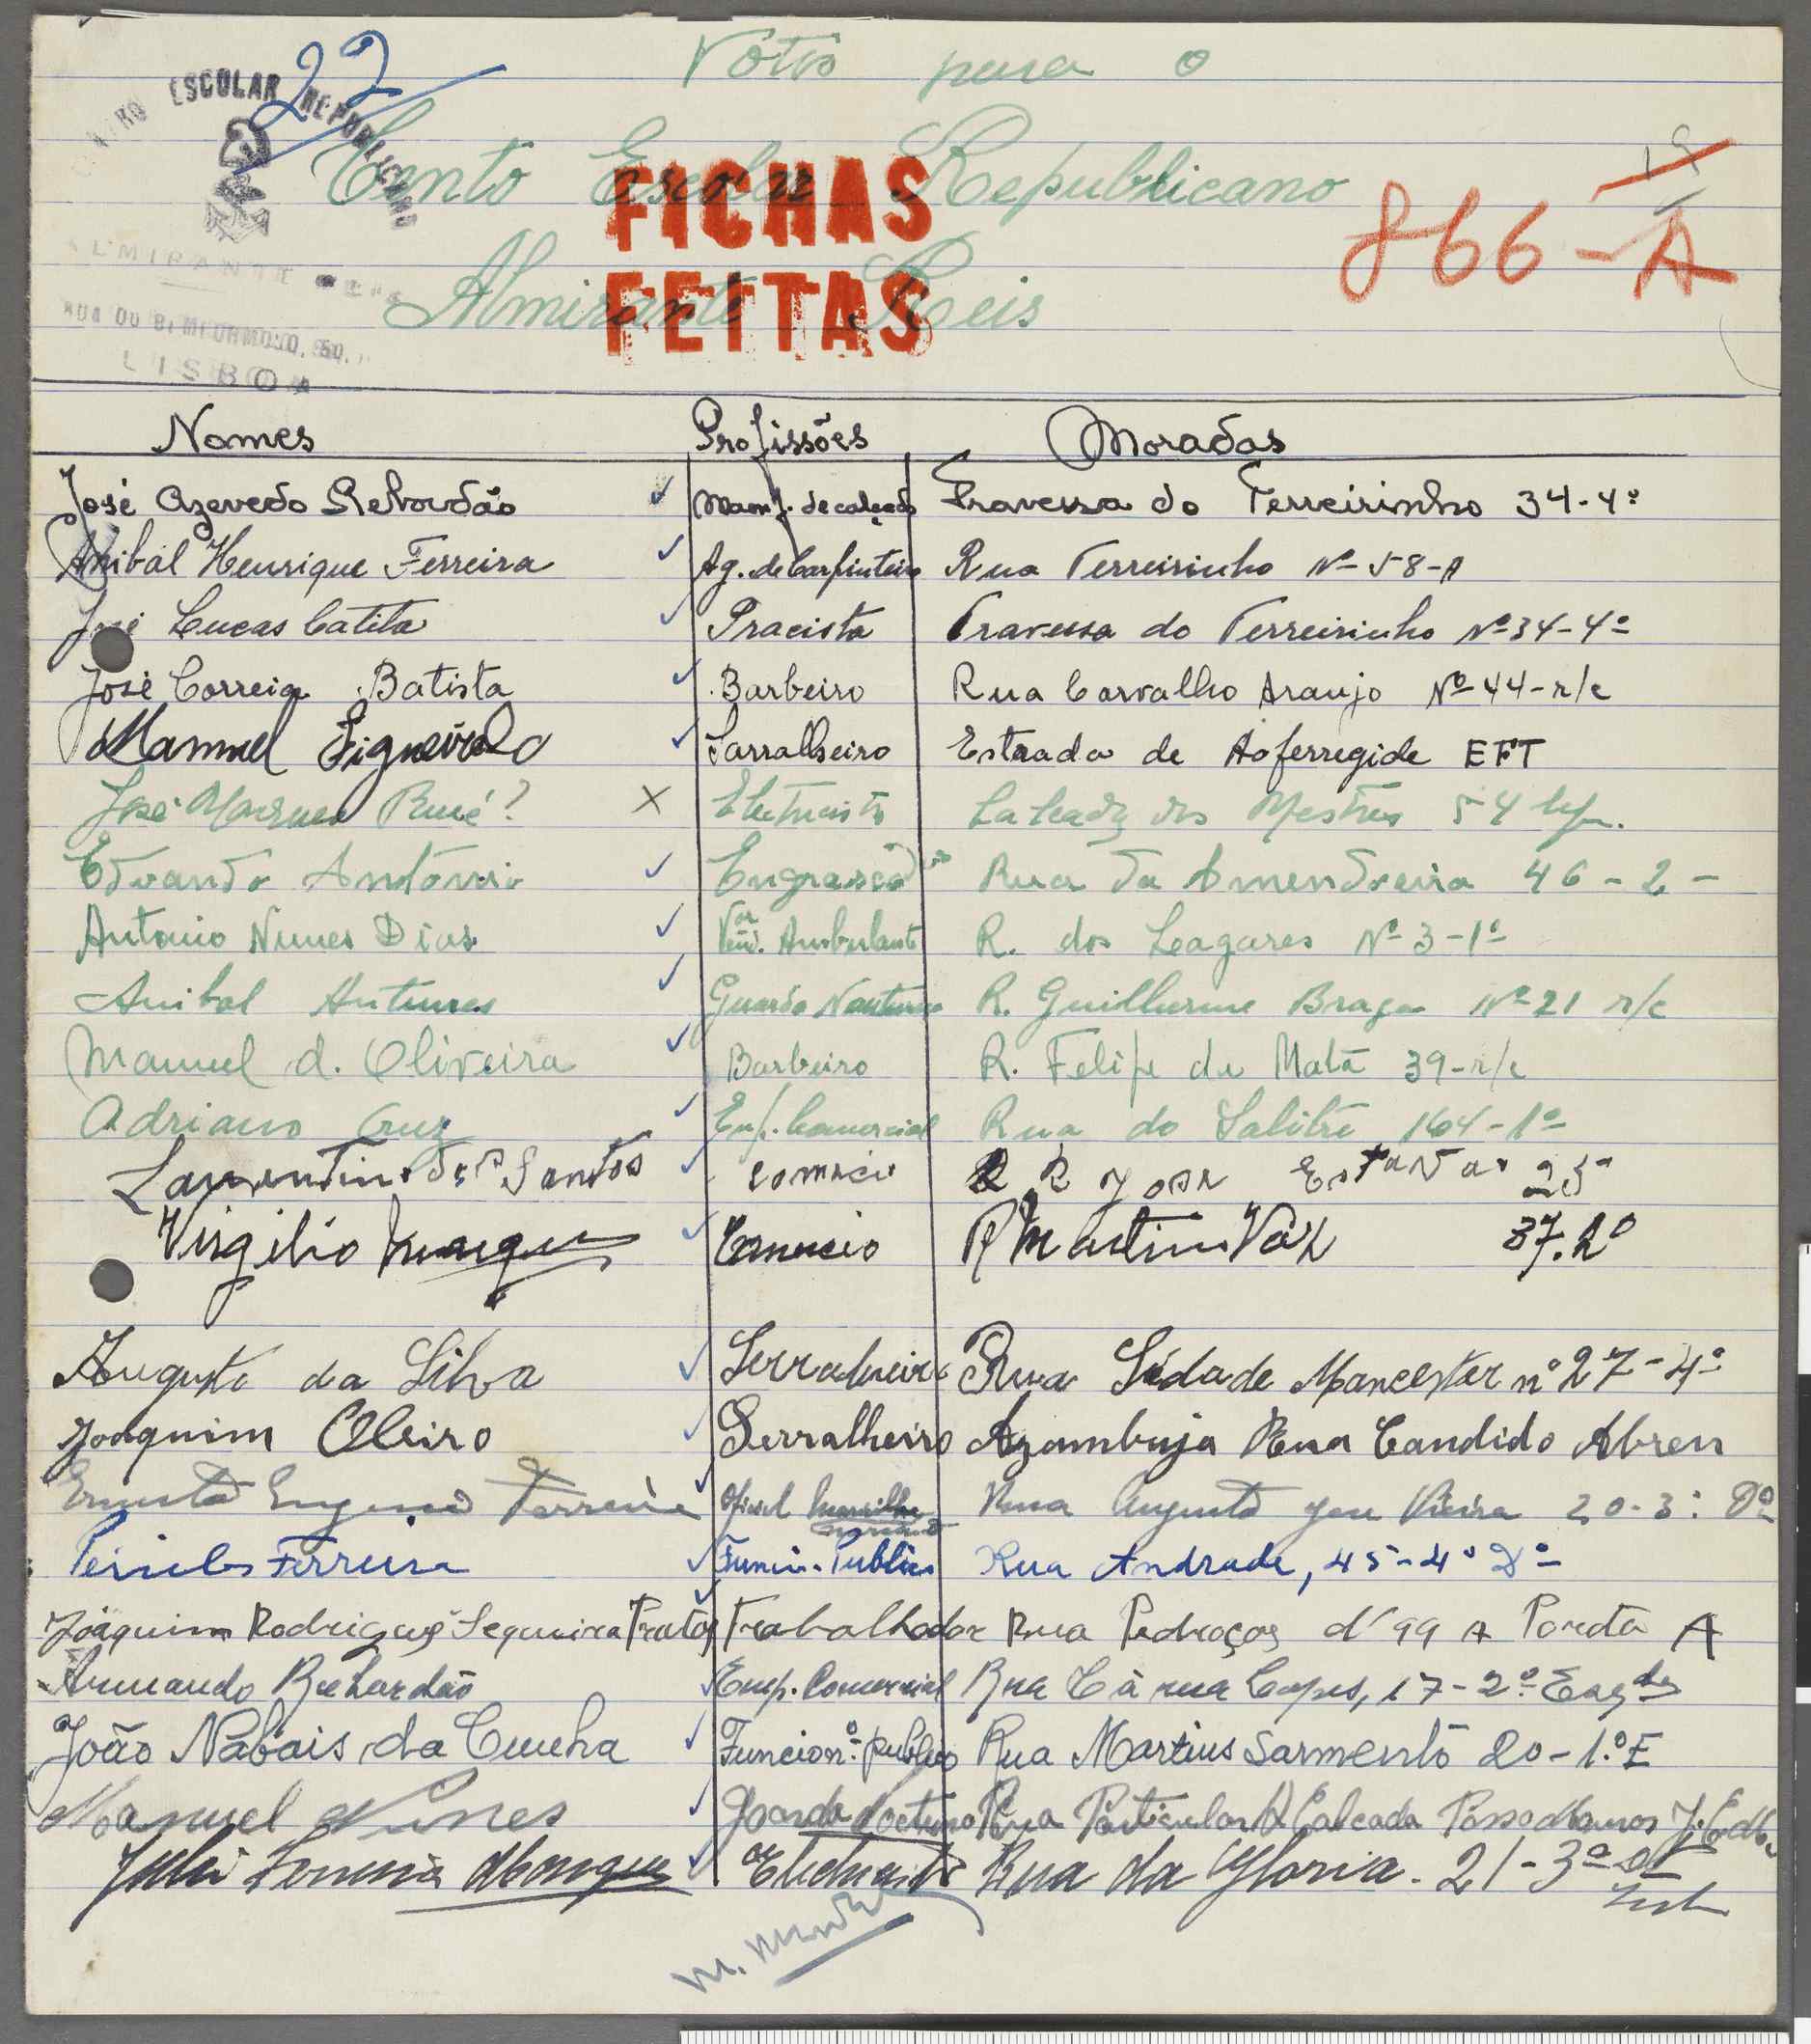 22
Votos para o
ESCOLAR REPUBLICANO
Cento Escolar Republicano
FICHAS
19
866-A
Almirante Reis
FEITAS
ALMIRANTE REIS
RUA DO BEMFORMOSO, 50,
LISBOA
Nomes Profissões Moradas
José Azevedo Rebordão Manf. de calçado Travessa do Terreirinho 34-4º
Anibal Henrique Ferreira Ag. de Carpinteiro Rua Terreirinho Nº 58-A
José Lucas Catita Pracista Travessa do Terreirinho Nº 34-4º
José Correia Batista Barbeiro Rua Carvalho Araujo Nº 44-r/c
Manuel Figueiredo Sarralheiro Estrada de Aoferregide EFT
José Marques ? X Eletricista Calçada dos Mestres 54
Eduardo António Engraxador Rua da Amendoeira 46-2-
Antonio Nunes Dias Vend.or Ambulante R. dos Lagares Nº 3-1º
Anibal Antunes Guarda Nocturno R. Guilherme Braga Nº 21 r/c
Manuel d. Oliveira Barbeiro R. Felipe da Mata 39-r/c
Adriano Cruz Emp. Comercial Rua do Salitre 164-1º
Laurentino dos Santos comercio R
Virgilio Marques Comercio R Martim Vaz 37.2º
Augusto da Silva Serralheiro Rua Sidade Mancester nº 27-4º
Joaquim Oleiro Serralheiro Azambuja Rua Candido Abreu
Ernesto Eugenio Ferreira Oficial Rua Augusto José Vieira 20-3º Dº
Pericles Ferreira Funcio. Publico Rua Andrade, 45-4º Dº
Joaquim Rodrigues Sequeira Tratos Trabalhador Rua Pedroços d' 99 A Porcta A
Armando Rebordão Emp. Comercial Rua C à rua Lopes, 17-2º Esqdo
João Nabais da Cunha Funcion.º publico Rua Martins Sarmento 20-1.º E
Manuel Nunes Guarda Noctuno Rua Particular A Calcada Poço Mouros
Julio Ferreira Marques Eletricista Rua da Gloria. 21-3º